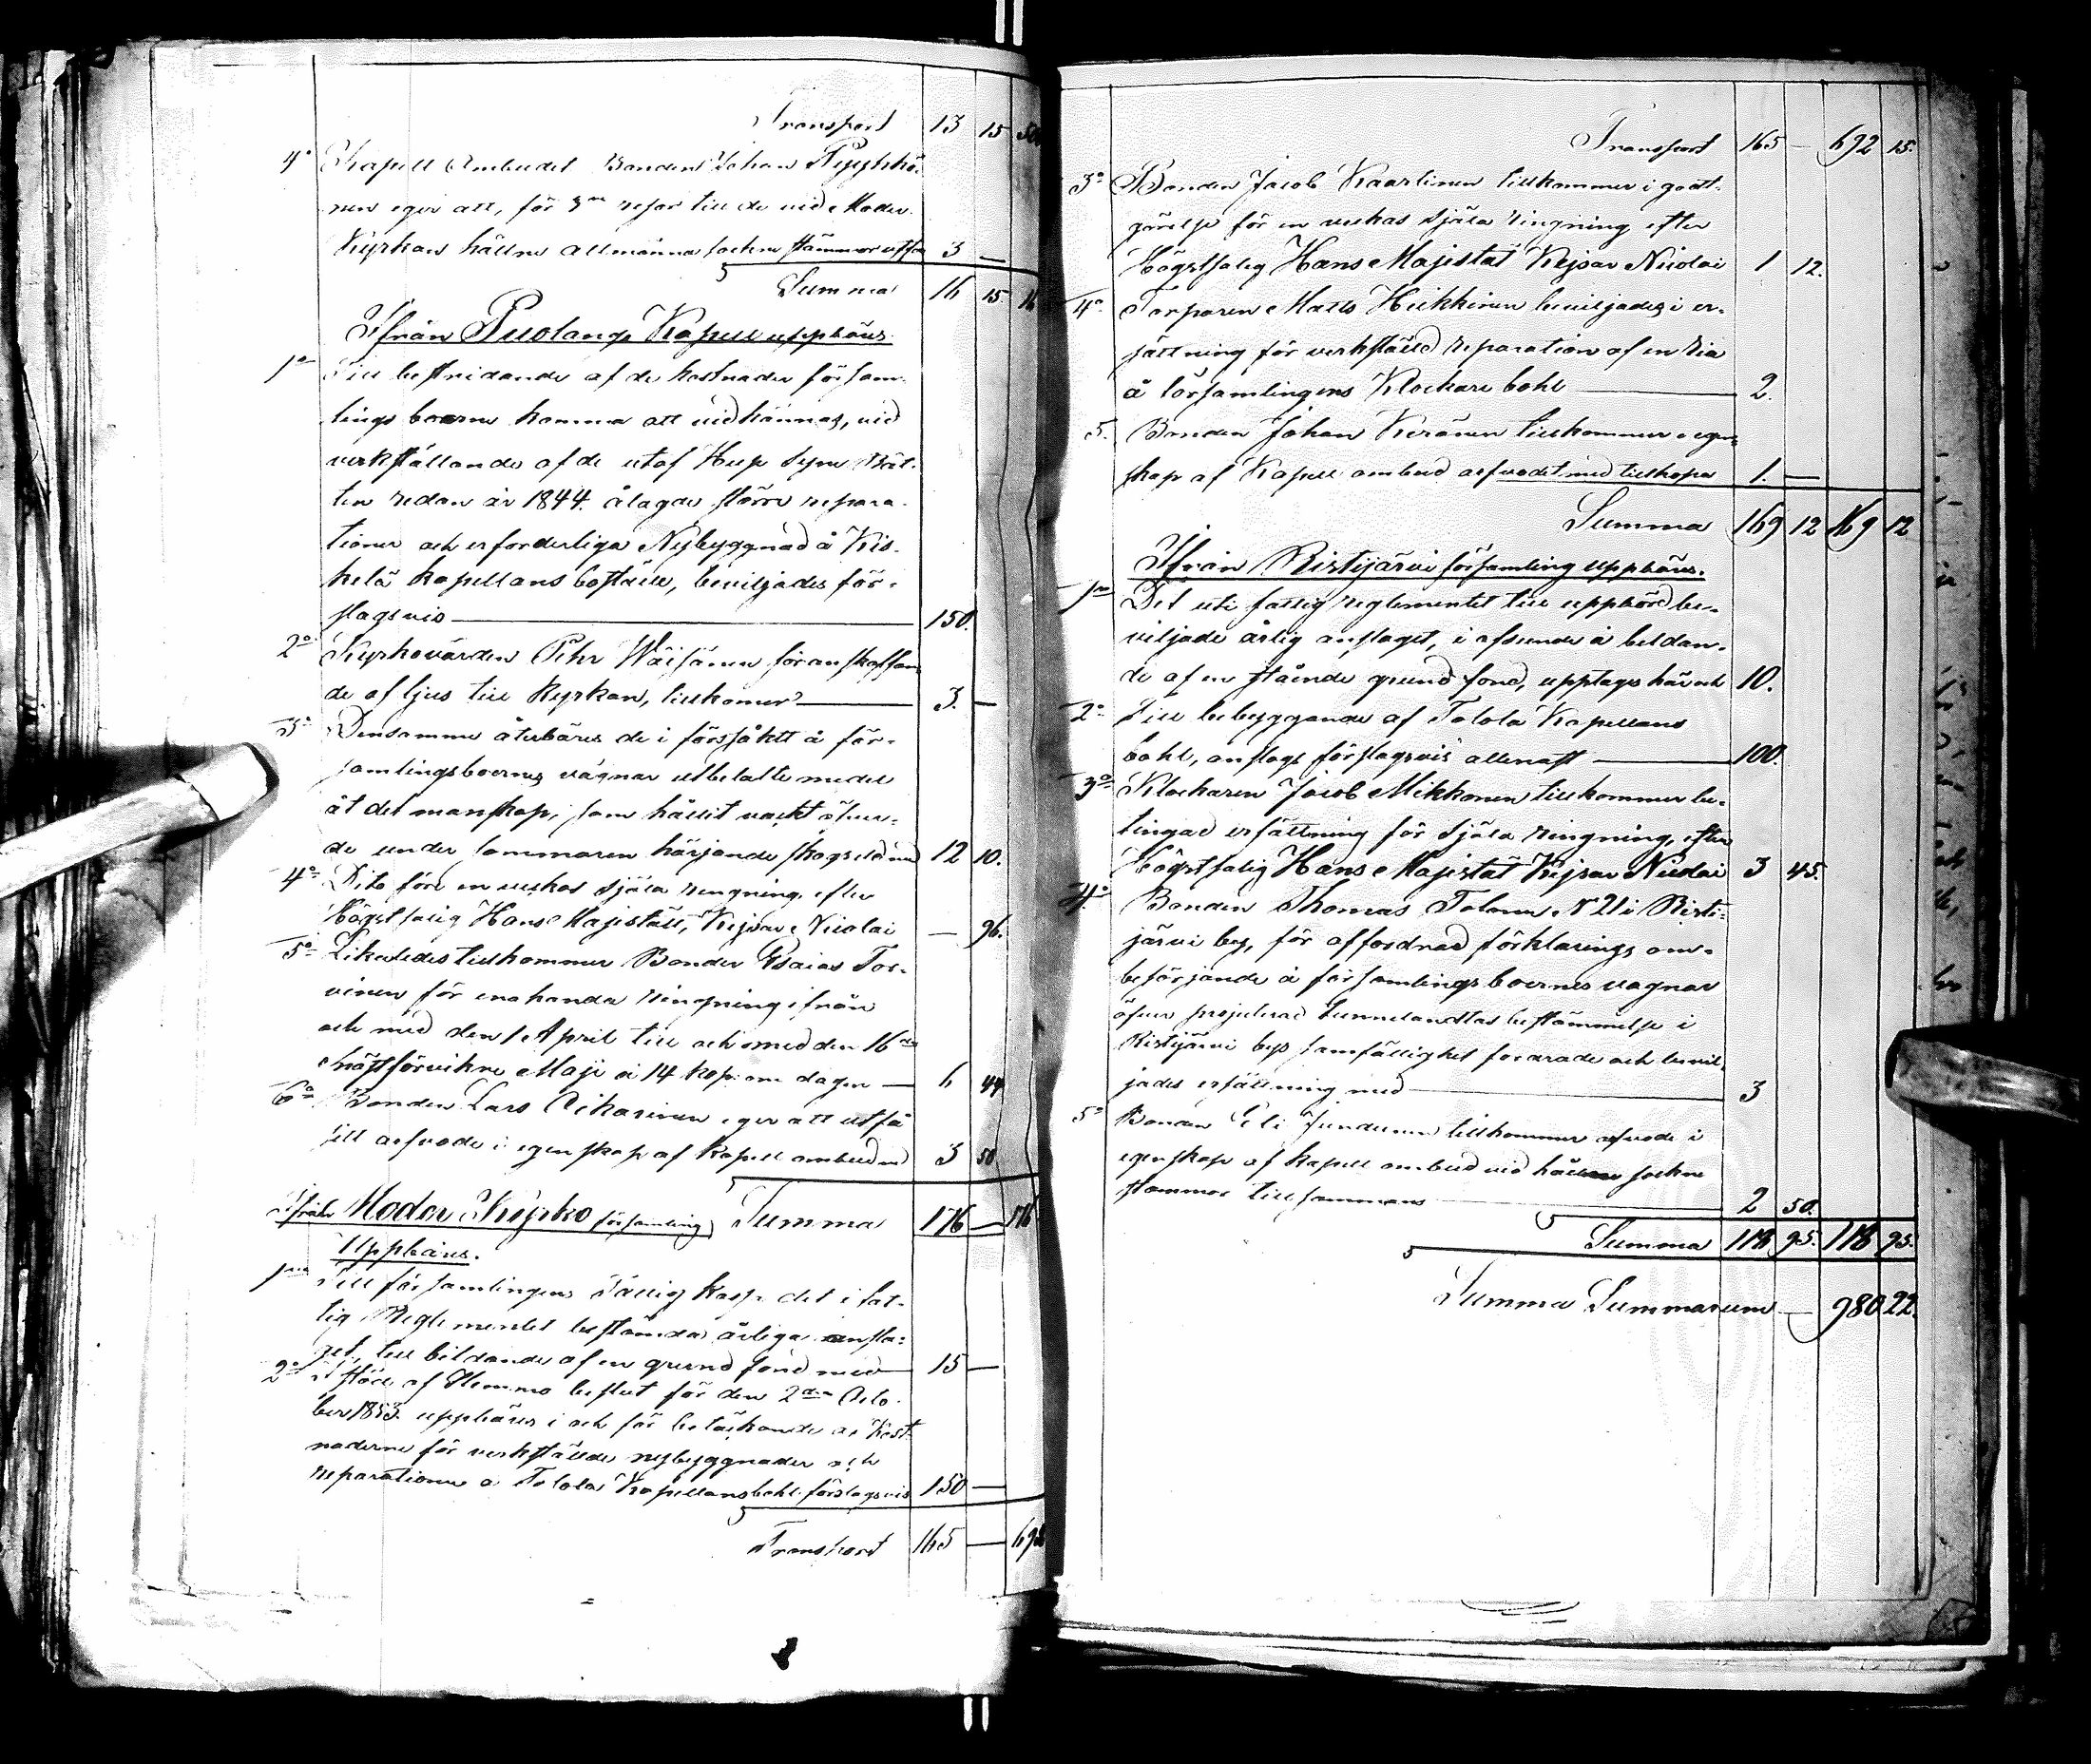 Transport 13 15
4o Kapell Ombudet Bonden Johan Pyykkö-
nen eger att, för 3ne resor till de vid Moder
Kyrkan hållne allmänna sockne stämmor utfå 3 —
Summa 16 15 16
Ifrån Puolango Kapell uppbäres.
1o Till bestridande af de kostnader försam-
lings boerne komma att vidkännas, vid
verkställande af de utaf Husesyns Rät-
ten redan år 1844 ålagde större repara-
tioner och erforderliga Nybyggnad å Kis-
kelä kapellans boställe, beviljades för-
slagsvis 150.
2o Kyrkovärden Pehr Wäisänen för anskaffan-
de af ljus till Kyrkan, tillkommer 3. —
3o Densamme återbäres de i förskått å för-
samlingsboernes vägnar utbetalte medel
åt det manskap, som hållit vackt öfver-
de under sommaren härjande skogseld med 12 10.
4o Dito före en veckas själa ringning efter
Högstsalig Hans Majestätt, Kejsar Nicolai — 96.
5o Likaledes tillkommer Bonden Esaias Tor-
vinen för enahanda ringning ifrån
och med den 1 April till och med den 16de
nästförvikne Maji á 14 kop: om dagen 6 44
6o Bonden Lars Oikarinen eger att utfå
sitt arfvode i egenskap af Kapell ombud med 3 50
Ifrån Moder Kyrko församling Summa 176 — 176
Uppbäres.
1mo Till församlingens Fattig Kassa det i fat-
tig Reglementet bestämda årliga ansla-
get, till bildande af en grund fond med 15 —
2o I stöd af Stemmo beslut för den 2dra Octo-
ber 1853. uppbäres i och för betäckande af Kost-
naderne för verkställde nybyggnader och
reparationer å Tolola Kapellansbohl förslagsvis 150 —
Transport 165 — 692
Transport 165 — 692 15.
3o Bonden Jacob Kaarlinen tillkommer i godt-
görelse för en veckas själa ringning efter
Högstsalig Hans Majestät Kejsar Nicolai 1 12.
4o Torparen Matts Heikkinen beviljades i er-
sättning för verkställd reparation af en ria
å församlingens Klockare bohl 2.
5. Bonden Johan Keränen tillkommer i egen-
skap af Kapell ombud arfvodet med tillhopa 1. —
Summa 169 12 169 12
Ifrån Ristijärvi församling uppbäres.
1mo Det uti fattig reglementet till uppbörd be-
viljade årlig anslaget, i afseende å beldan-
de af en stående grund fond, upptages här och 10.
2o Till bebyggande af Tolola Kapellans
bohl, anslogs förslagsvis allenast 100.
3o Klockaren Jacob Mikkonen tillkommer be-
tingad ersättning för själa ringning, efter
Högstsalig Hans Majestät Kejsar Nicolai 3 45.
4o Bonden Thomas Tolonen N 21 i Risti-
järvi by, för affordrad förklarings om-
besörjande å församlings boernes vägnar
öfver projecterad bestämmelse i
Ristijärvi bys samfällighet fordrade och bevil-
jades ersättning med 3
5o Bonden Eli Juntunen tillkommer arfvode i
egenskap af kapell ombud vid hållne sockne
stämmor tillsammans 2 50.
Summa 118 95. 118 95.
Summa Summarum — 980 22.